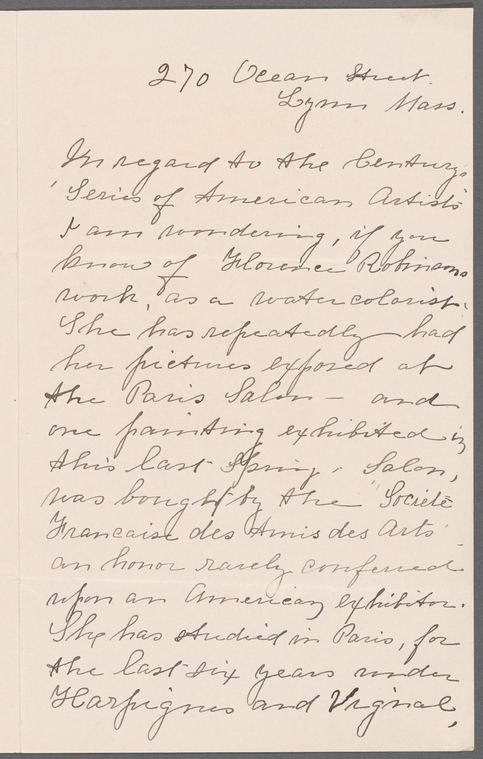 270 Ocean Street.
Lynn Mass.
In regard to the Century's
'Series of American Artists'
I am wondering, if you
know of Florence Robinsons
work, as a water colorist.
She has repeatedly had
her pictures exposed at
the Paris Salon — and
one painting exhibited in
this last Spring, Salon,
was bought by the "Societé
Francaise des Amis des Arts"
an honor rarely conferred
upon an American exhibitor.
She has studied in Paris, for
the last six years under
Harpignes and Vignal,